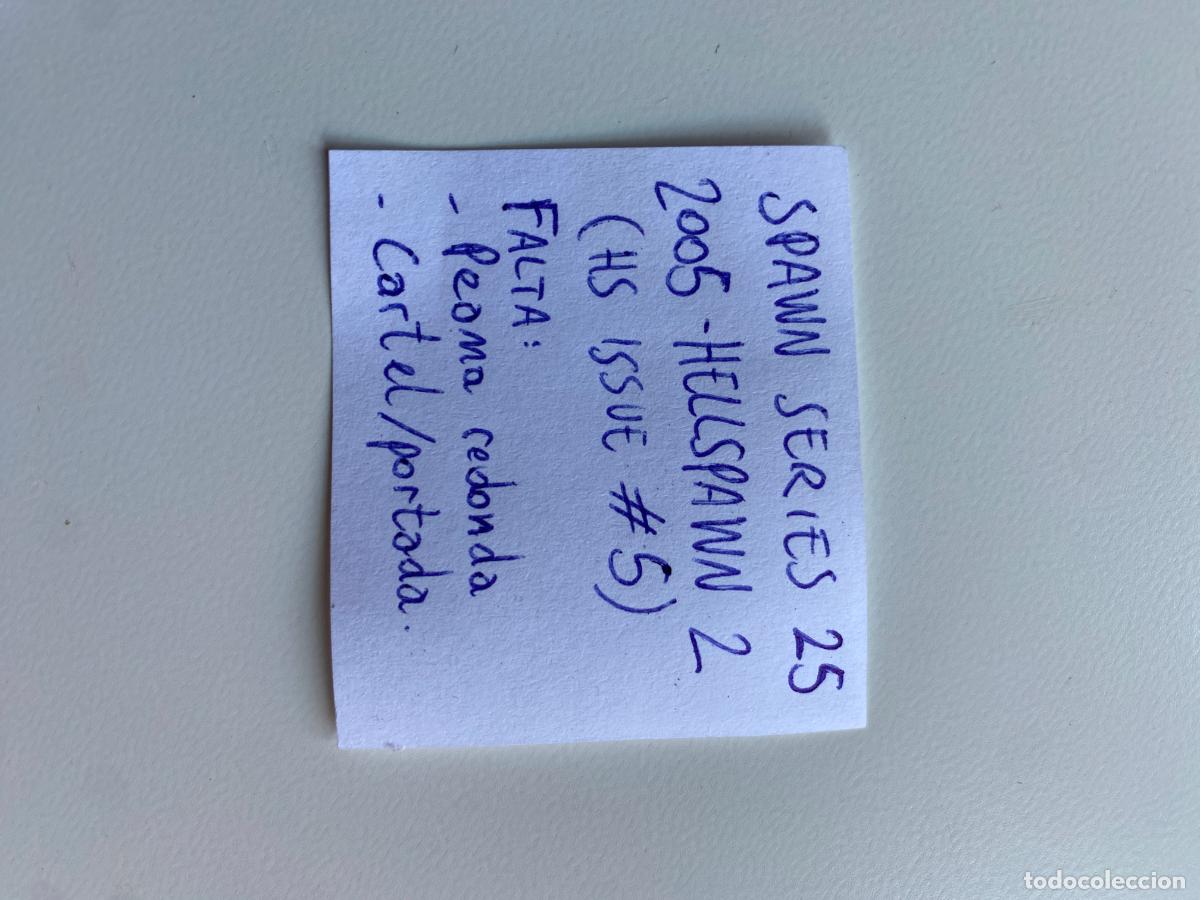 SPAWN SERIES 25
2005 - HELLSPAWN 2
(HS ISSUE #5)
FALTA:
- Peana redonda
- Cartel/portada.
todocoleccion